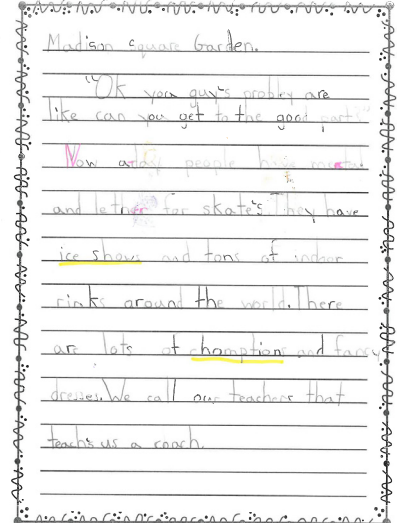 Madison Square Garden.
"Ok you guy's probley are
like can you get to the good part?"
Now adays people have metal
and lether for skate's. They have
ice shows and tons of indoor
rinks around the world. There
are lots of chomptions and fancy
dresses. We call our teachers that
teach's us a coach.